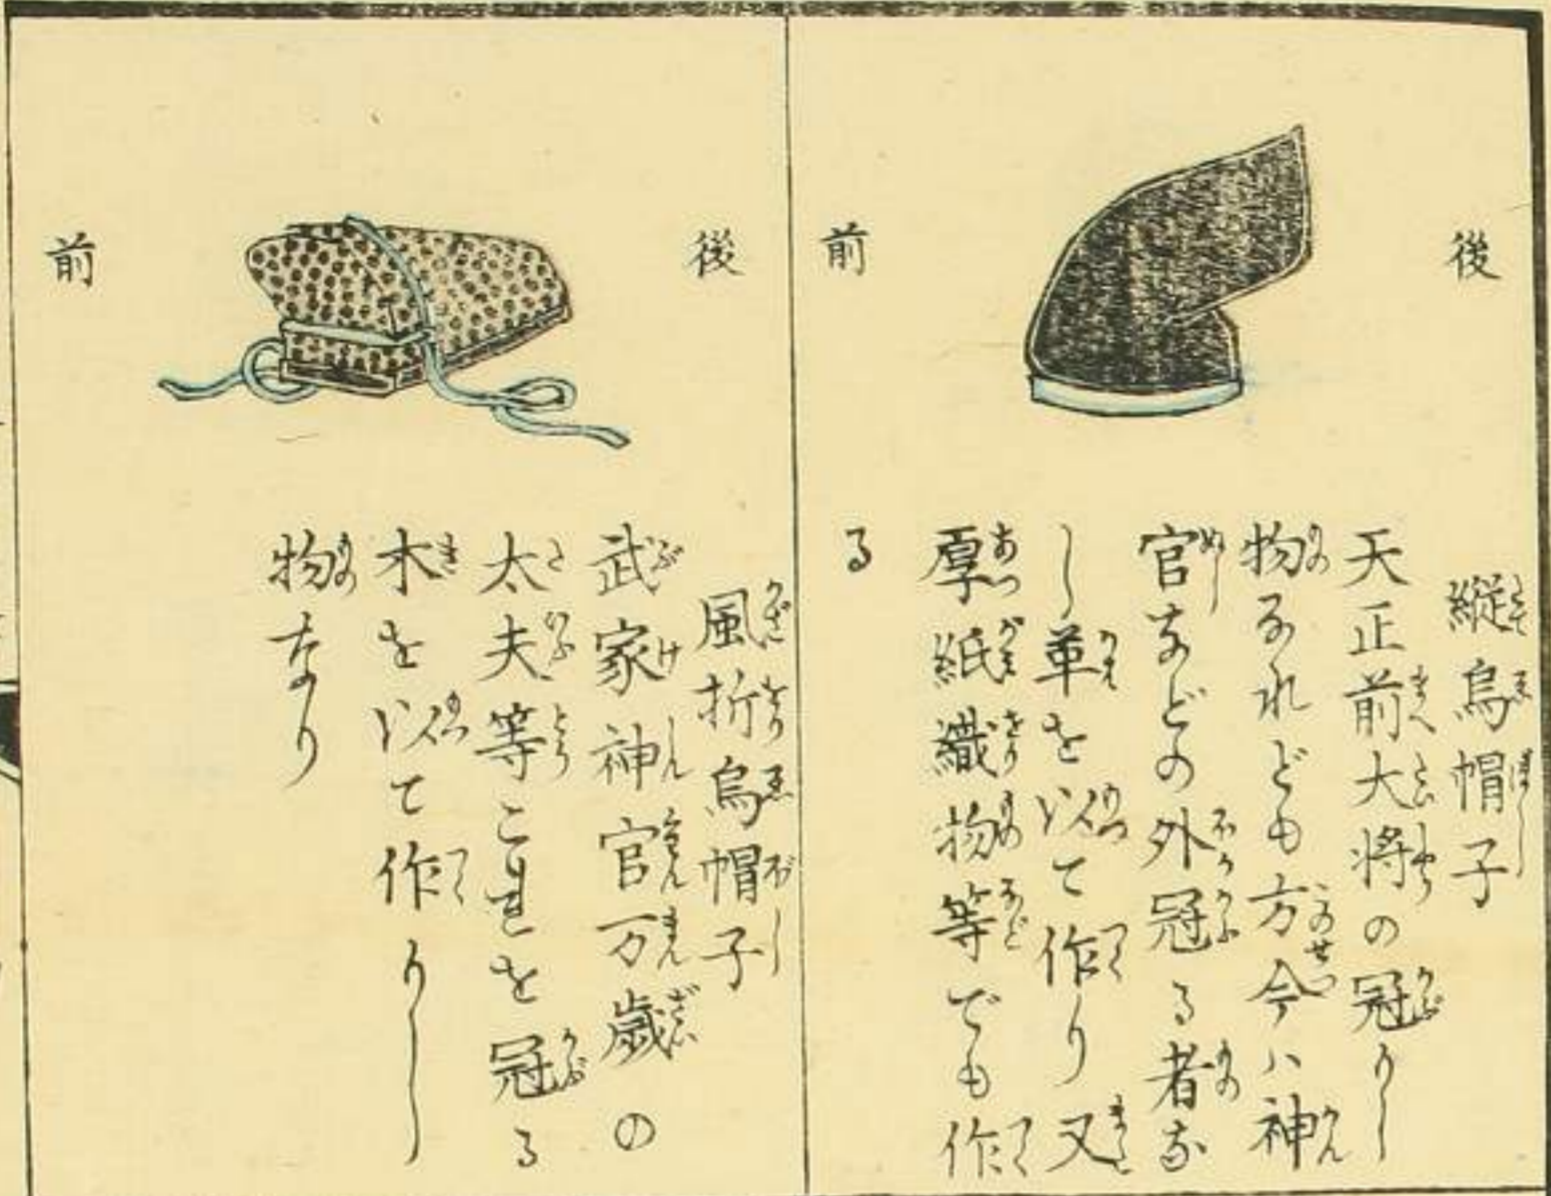 後
前
縦烏帽子
天正前大将の冠りし
物なれども方今ハ神
官などの外冠る者な
し革を以て作り又
厚紙織物等でも作
る
後
前
風折烏帽子
武家神官万歳の
太夫等これを冠る
木を以て作りし
物なり